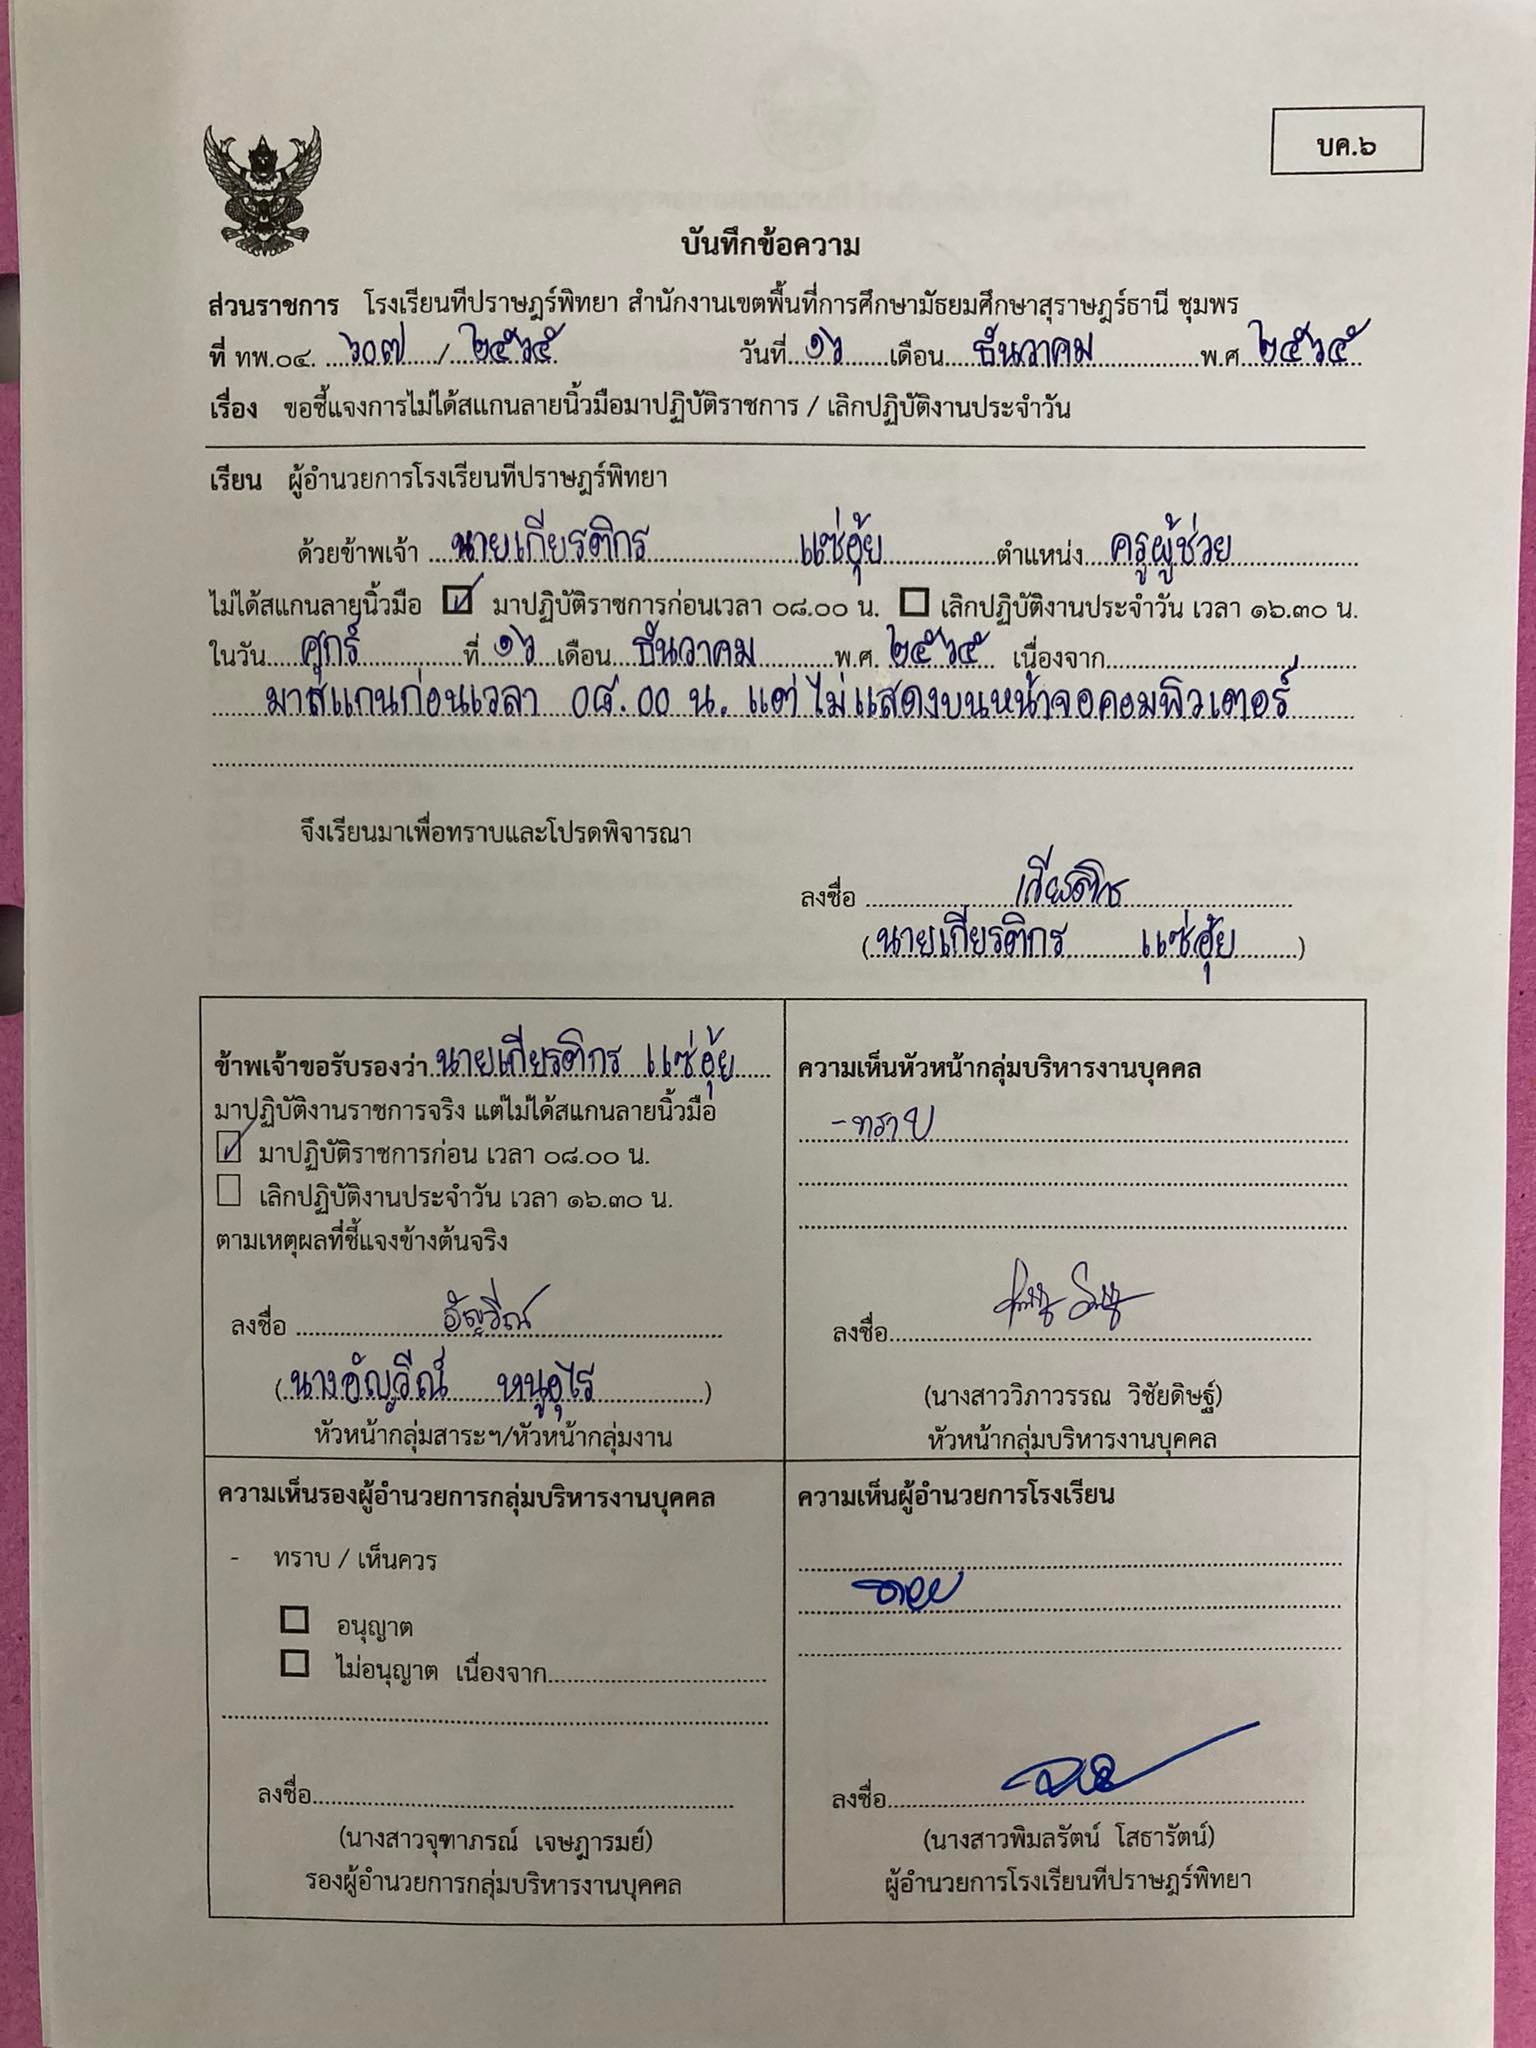 บค.๖
บันทึกข้อความ
ส่วนราชการ โรงเรียนทีปราษฎร์พิทยา สำนักงานเขตพื้นที่การศึกษามัธยมศึกษาสุราษฎร์ธานี ชุมพร
ที่ ทพ.๐๔. ๖๐๗ / ๒๕๖๕ วันที่ ๑๖ เดือน ธันวาคม พ.ศ ๒๕๖๕
เรื่อง ขอชี้แจงการไม่ได้สแกนลายนิ้วมือมาปฏิบัติราชการ / เลิกปฏิบัติงานประจำวัน
เรียน ผู้อำนวยการโรงเรียนทีปราษฎร์พิทยา
ด้วยข้าพเจ้า นายเกียรติกร แซ่ฮุ้ย ตำแหน่ง ครูผู้ช่วย
ไม่ได้สแกนลายนิ้วมือ ☑ มาปฏิบัติราชการก่อนเวลา ๐๘.๐๐ น. ☐ เลิกปฏิบัติงานประจำวัน เวลา ๑๖.๓๐ น.
ในวัน ศุกร์ ที่ ๑๖ เดือน ธันวาคม พ.ศ. ๒๕๖๕ เนื่องจาก
มาสแกนก่อนเวลา ๐๘.๐๐ น. แต่ไม่แสดงบนหน้าจอคอมพิวเตอร์
จึงเรียนมาเพื่อทราบและโปรดพิจารณา
ลงชื่อ เกียรติกร
(นายเกียรติกร แซ่ฮุ้ย)
ข้าพเจ้าขอรับรองว่า นายเกียรติกร แซ่ฮุ้ย
มาปฏิบัติงานราชการจริง แต่ไม่ได้สแกนลายนิ้วมือ
☑ มาปฏิบัติราชการก่อน เวลา ๐๘.๐๐ น.
☐ เลิกปฏิบัติงานประจำวัน เวลา ๑๖.๓๐ น.
ตามเหตุผลที่ชี้แจงข้างต้นจริง
ลงชื่อ อัญวีณ์
(นางอัญวีณ์ หนูอุไร)
หัวหน้ากลุ่มสาระฯ/หัวหน้ากลุ่มงาน
ความเห็นหัวหน้ากลุ่มบริหารงานบุคคล
- ทราบ
ลงชื่อ
(นางสาววิภาวรรณ วิชัยดิษฐ์)
หัวหน้ากลุ่มบริหารงานบุคคล
ความเห็นรองผู้อำนวยการกลุ่มบริหารงานบุคคล
- ทราบ / เห็นควร
☐ อนุญาต
☐ ไม่อนุญาต เนื่องจาก
ลงชื่อ
(นางสาวจุฑาภรณ์ เจษฎารมย์)
รองผู้อำนวยการกลุ่มบริหารงานบุคคล
ความเห็นผู้อำนวยการโรงเรียน
ลงชื่อ
(นางสาวพิมลรัตน์ โสธารัตน์)
ผู้อำนวยการโรงเรียนทีปราษฎร์พิทยา